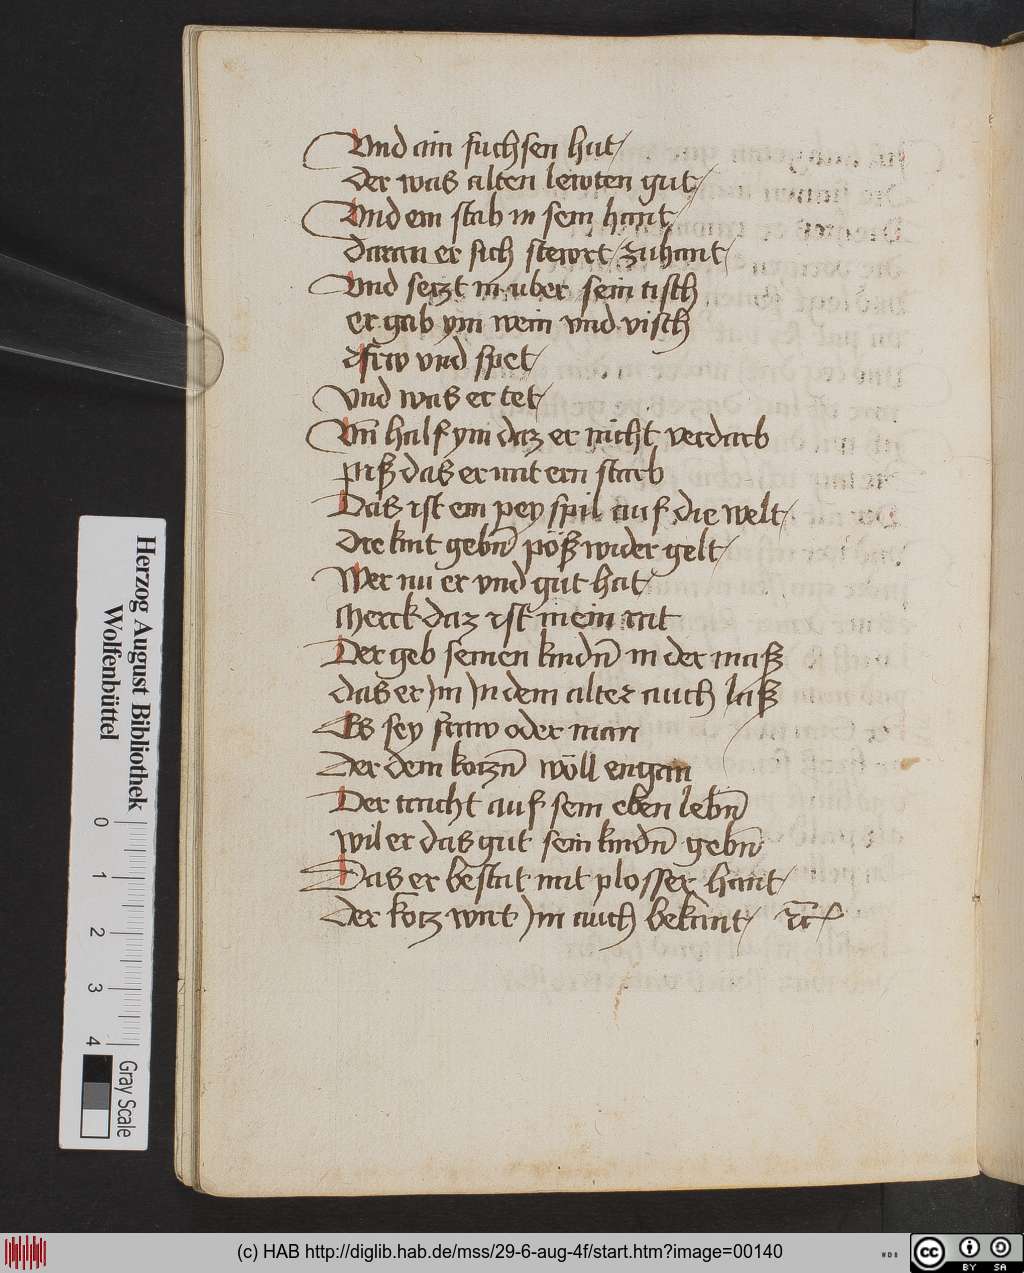 Vnd ain fuchsen hut
der was alten lewten gut
Vnd ein stab in sein hant
daran er sich stewrt zuhant
Vnd seczt in uber sein tisch
er gab ym wein vnd visch
frw vnd spet
vnd was er tet
Vn̄ half ym daz er nicht verdarb
piß das er mit ern starb
Das ist ein pey spil auf die welt
die kint gebn̄ pöß wider gelt
Wer nu er vnd gut hat
Merck daz ist mein rat
Der geb seinen kindn̄ in der maß
das er jm jn dem alter auch laß
Es sey fraw oder man
Der dem koczn̄ wöll engan
Der tracht auf sein eben lebn̄
wil er das gut sein kindn̄ gebn̄
Das er bestat mit plosser hant
der kotz wirt jm auch bekant ꝛc
Herzog August Bibliothek
Wolfenbüttel
0 1 2 3 4
Gray Scale
(c) HAB http://diglib.hab.de/mss/29-6-aug-4f/start.htm?image=00140
WDB
cc BY SA